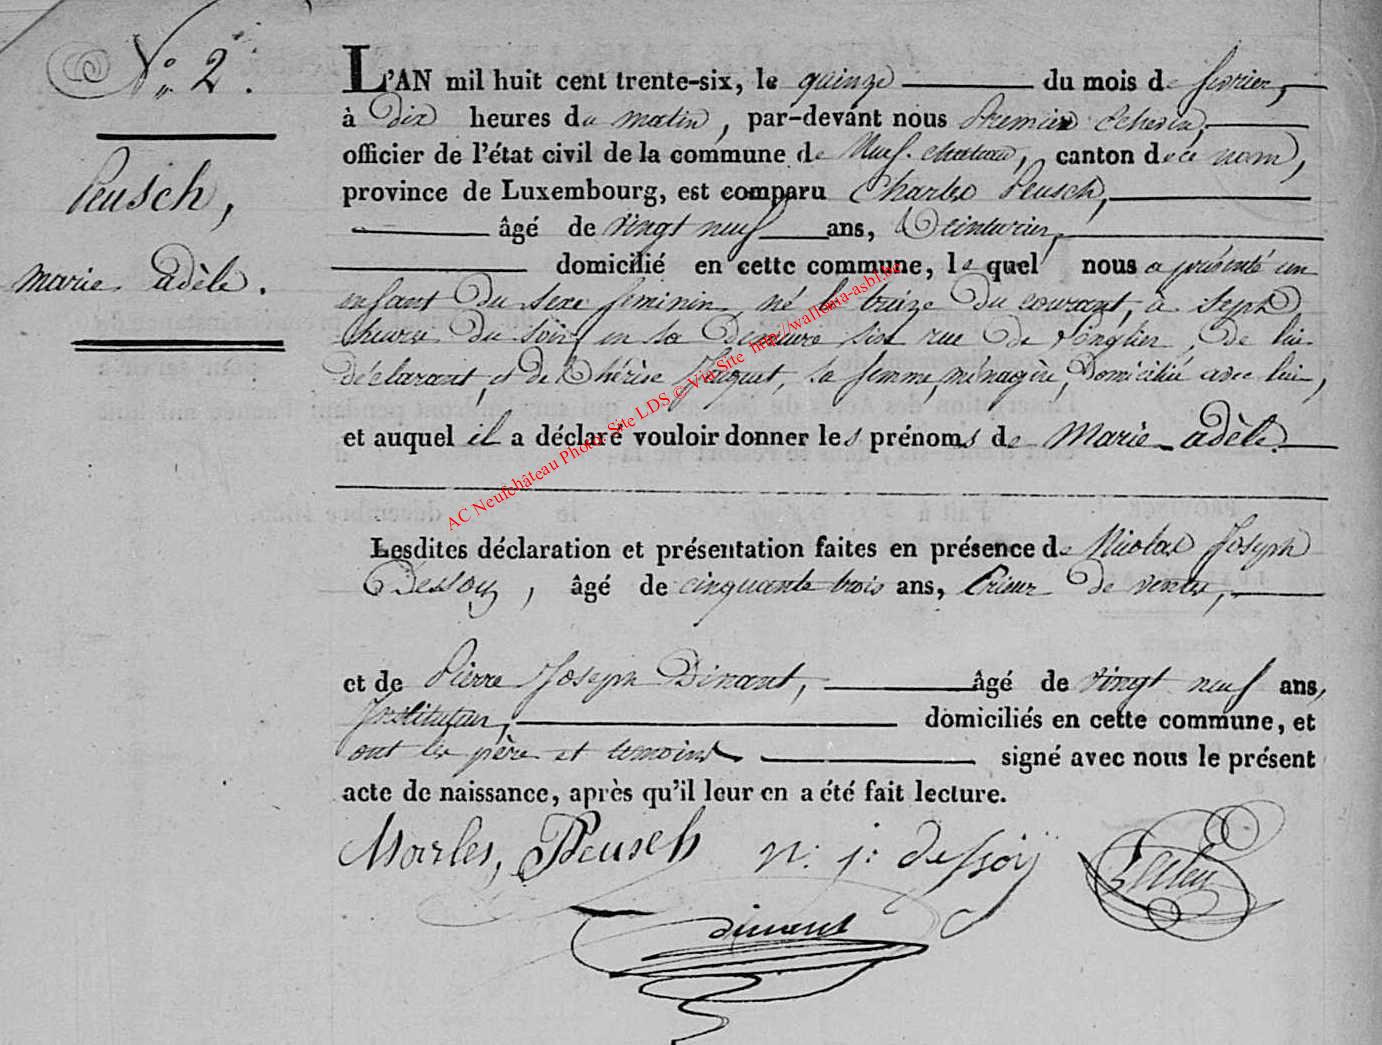 N.º 2.
Peusch,
marie adèle.
L'AN mil huit cent trente-six, le quinze du mois de fevrier,
à Dix heures du matin, par-devant nous Premier Echevin,
officier de l'état civil de la commune de Neuf-chateau, canton de ce nom,
province de Luxembourg, est comparu Charles Peusch,
âgé de vingt neuf ans, Teinturier,
domicilié en cette commune, le quel nous a présenté un
enfant du sexe feminin né le treize du courant, à sept
heures du soir en sa Demeure sise rue de , de lui
Déclarant, et de Thérèse Jacquet, sa femme, ménagère, Domiciliée avec lui,
et auquel il a déclaré vouloir donner les prénoms de Marie-adèle.
Lesdites déclaration et présentation faites en présence de Nicolas Joseph
Dessoy, âgé de cinquante trois ans, Crieur de ventes,
et de Pierre Joseph Dinant, âgé de vingt neuf ans,
Instituteur, domiciliés en cette commune, et
ont les père et temoins signé avec nous le présent
acte de naissance, après qu'il leur en a été fait lecture.
Charles, Peusch n: j: dessoÿ
dinant
AC Neufchâteau Photo: Site LDS © Via Site http://wallonia-asbl.be